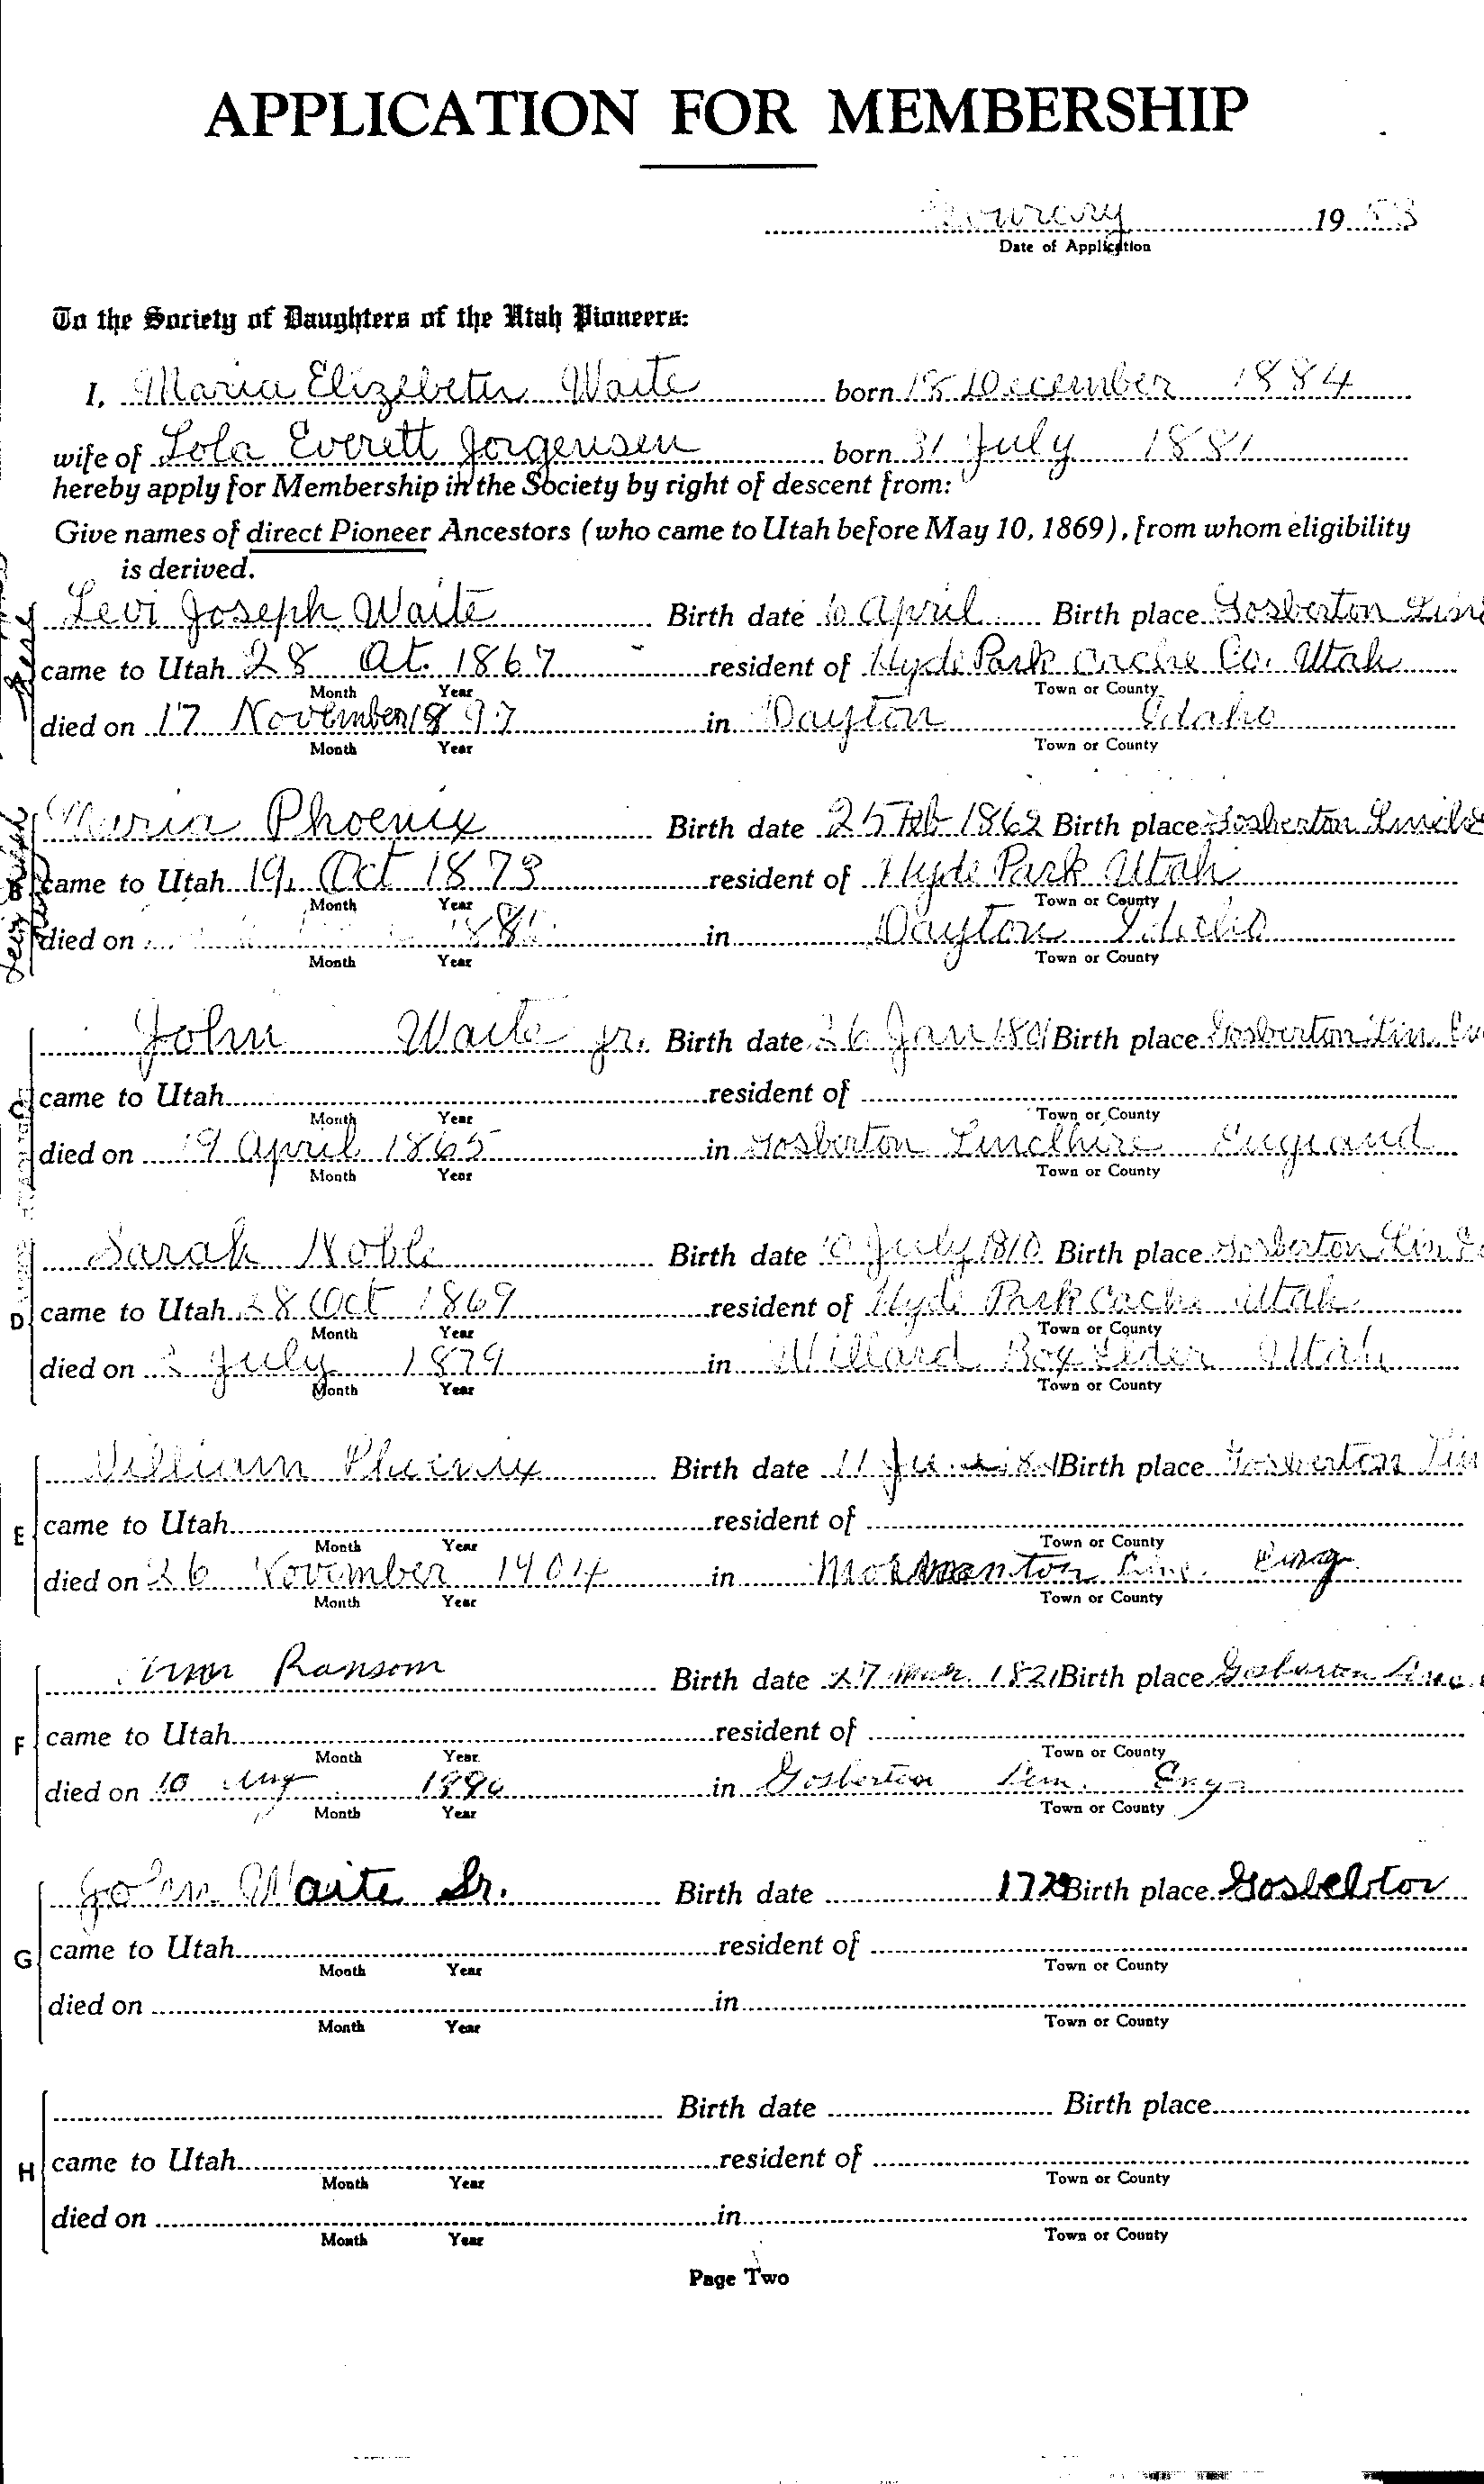 APPLICATION FOR MEMBERSHIP
19 53
Date of Application
To the Society of Daughters of the Utah Pioneers:
I, Maria Elizebeth Waite born 18 December 1884
wife of Lola Everett Jorgensen born 31 July 1881
hereby apply for Membership in the Society by right of descent from:
Give names of direct Pioneer Ancestors (who came to Utah before May 10, 1869), from whom eligibility
is derived.
Levi Joseph Waite Birth date 6 April Birth place Gosberton
came to Utah 28 Oct. 1867 resident of Hyde Park Cache Co. Utah
Month Year Town or County
died on 17 November 1897 in Dayton Idaho
Month Year Town or County
Maria Phoenix Birth date 25 Feb 1862 Birth place Gosberton
B came to Utah 19, Oct 1873 resident of Hyde Park Utah
Month Year Town or County
died on 188 in Dayton Idaho
Month Year Town or County
John Waite Jr. Birth date 26 Jan 1801 Birth place Gosberton Lin.
C came to Utah resident of
Month Year Town or County
died on 19 April 1865 in Gosberton Linclhire England
Month Year Town or County
Sarah Noble Birth date 10 July 1810 Birth place Gosberton Lin
D came to Utah 28 Oct 1869 resident of Hyde Park Cache Utah
Month Year Town or County
died on 2 July 1879 in Willard Box Elder Utah
Month Year Town or County
William Phoenix Birth date 11 Birth place Gosberton Lin
E came to Utah resident of
Month Year Town or County
died on 26 November 1904 in Line. Eng
Month Year Town or County
Ransom Birth date 27 Mar. 1821 Birth place Gosberton
F came to Utah resident of
Month Year Town or County
died on 10 Aug 1890 in Gosberton Lin. Eng
Month Year Town or County
John Waite Sr. Birth date Birth place Gosbelton
G came to Utah resident of
Month Year Town or County
died on in
Month Year Town or County
Birth date Birth place
H came to Utah resident of
Month Year Town or County
died on in
Month Year Town or County
Page Two